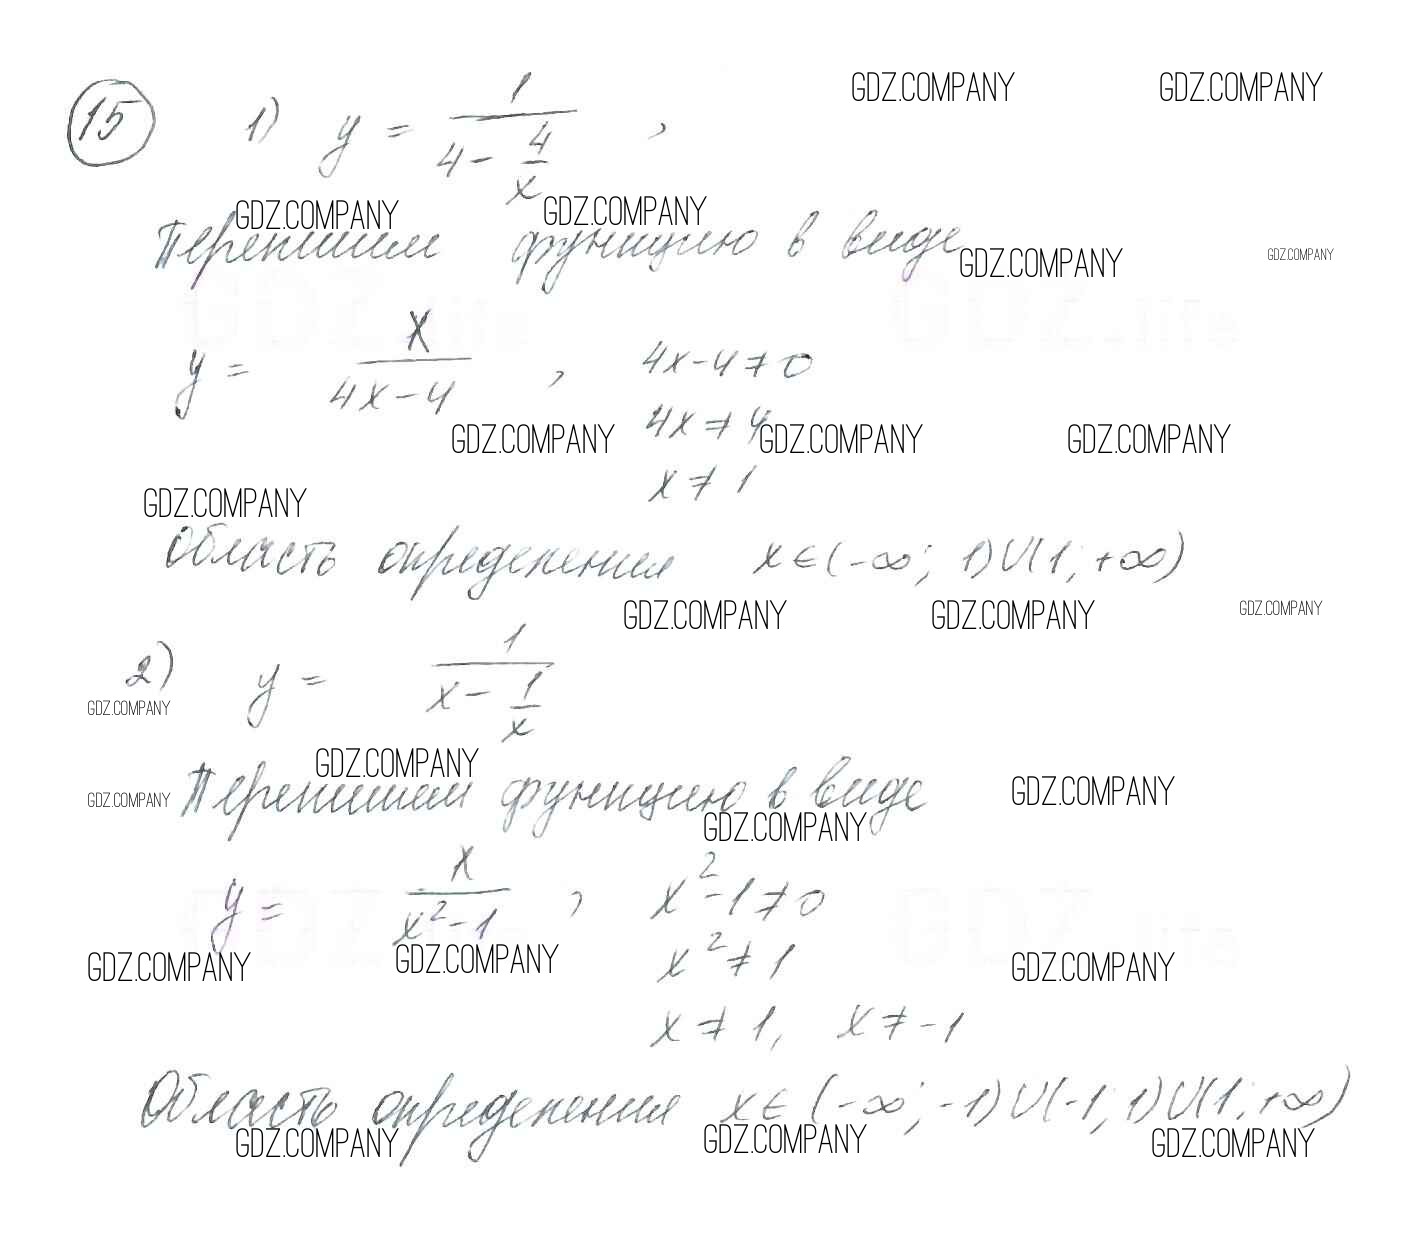 15 1) y = 1/(4 - 4/x) ,
GDZ.COMPANY GDZ.COMPANY
GDZ.COMPANY GDZ.COMPANY
Перепишем функцию в виде
GDZ.COMPANY GDZ.COMPANY
GDZ.life GDZ.life
y = x/(4x-4) , 4x-4≠0
4x≠4
GDZ.COMPANY GDZ.COMPANY GDZ.COMPANY
x≠1
GDZ.COMPANY
Область определения x∈(-∞; 1)∪(1; +∞)
GDZ.COMPANY GDZ.COMPANY GDZ.COMPANY
2) y = 1/(x - 1/x)
GDZ.COMPANY
GDZ.COMPANY
Перепишем функцию в виде
GDZ.COMPANY GDZ.COMPANY
GDZ.COMPANY
y = x/(x²-1) , x²-1≠0
GDZ.life GDZ.life
x²≠1
GDZ.COMPANY GDZ.COMPANY GDZ.COMPANY
x≠1, x≠-1
Область определения x∈(-∞; -1)∪(-1; 1)∪(1; +∞)
GDZ.COMPANY GDZ.COMPANY GDZ.COMPANY